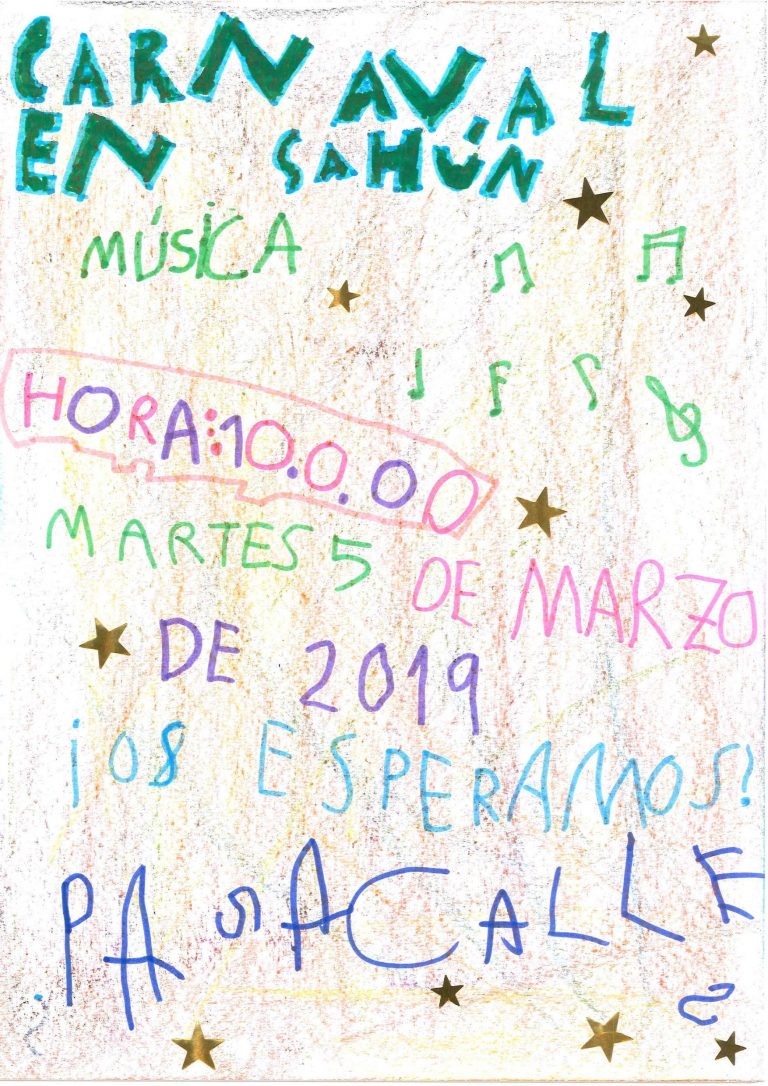 CARNAVAL
EN SAHÚN
MÚSICA
HORA:10.0.00
MARTES 5 DE MARZO
DE 2019
¡OS ESPERAMOS!
PASACALLE
S